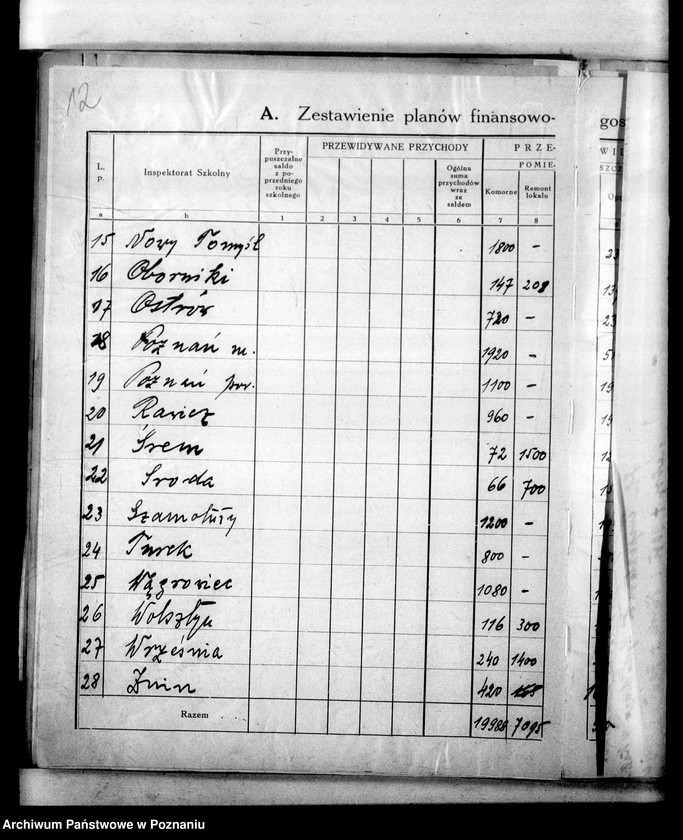 12
A. Zestawienie planów finansowo-
gos
L. p.
Inspektorat Szkolny
Przy-
puszczalne
saldo
z po-
przedniego
roku
szkolnego
PRZEWIDYWANE PRZYCHODY
Ogólna
suma
przychodów
wraz
ze
saldem
PRZE-
POMIE-
Komorne
Remont
lokalu
a b 1 2 3 4 5 6 7 8
15 Nowy Tomyśl 1800 -
16 Oborniki 147 208
17 Ostrów 720 -
18 Poznań m. 1920 -
19 Poznań pow. 1100 -
20 Rawicz 960 -
21 Śrem 72 1500
22 Sroda 66 700
23 Szamotuły 1200 -
24 Turek 800 -
25 Wągrowiec 1080 -
26 Wolsztyn 116 300
27 Września 240 1400
28 Żnin 420
Razem 19988 7095
Archiwum Państwowe w Poznaniu